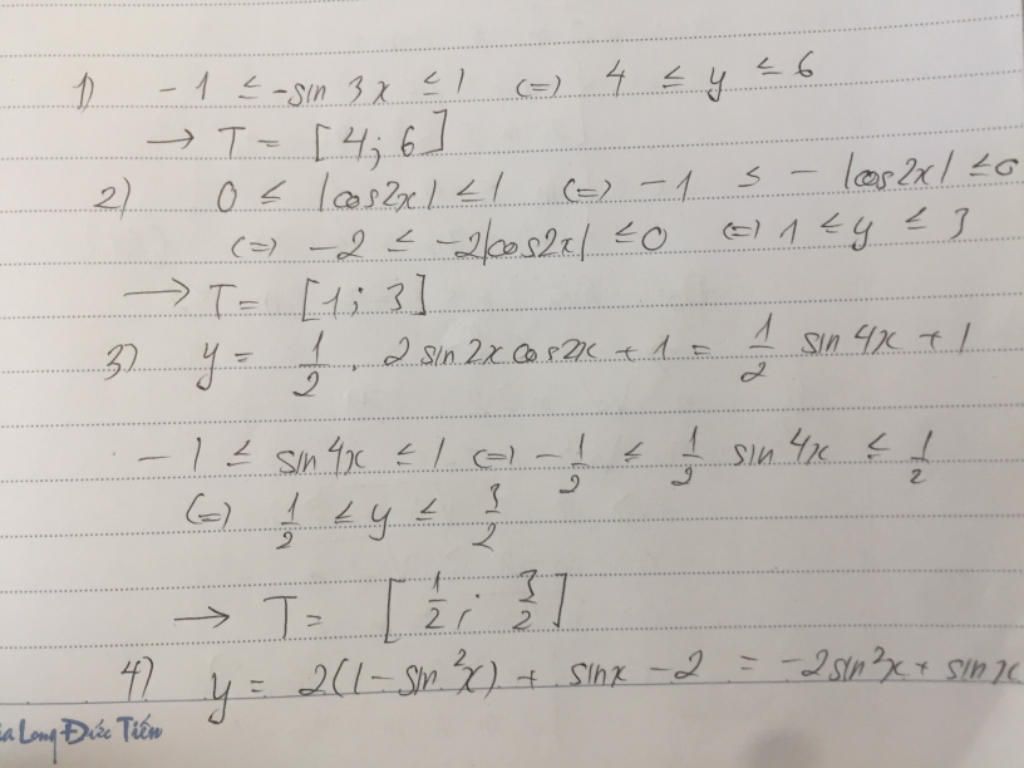 1) -1 ≤ -sin 3x ≤ 1 (=) 4 ≤ y ≤ 6
→ T = [4; 6]
2) 0 ≤ |cos2x| ≤ 1 (=) -1 ≤ - |cos2x| ≤ 0
(=) -2 ≤ -2|cos2x| ≤ 0 (=) 1 ≤ y ≤ 3
→ T = [1; 3]
3) y = 1/2 . 2 sin2x cos2x + 1 = 1/2 sin 4x + 1
-1 ≤ sin 4x ≤ 1 (=) -1/2 ≤ 1/2 sin 4x ≤ 1/2
(=) 1/2 ≤ y ≤ 3/2
→ T = [1/2; 3/2]
4) y = 2(1-sin²x) + sinx - 2 = -2sin²x + sinx
Long Đức Tiến